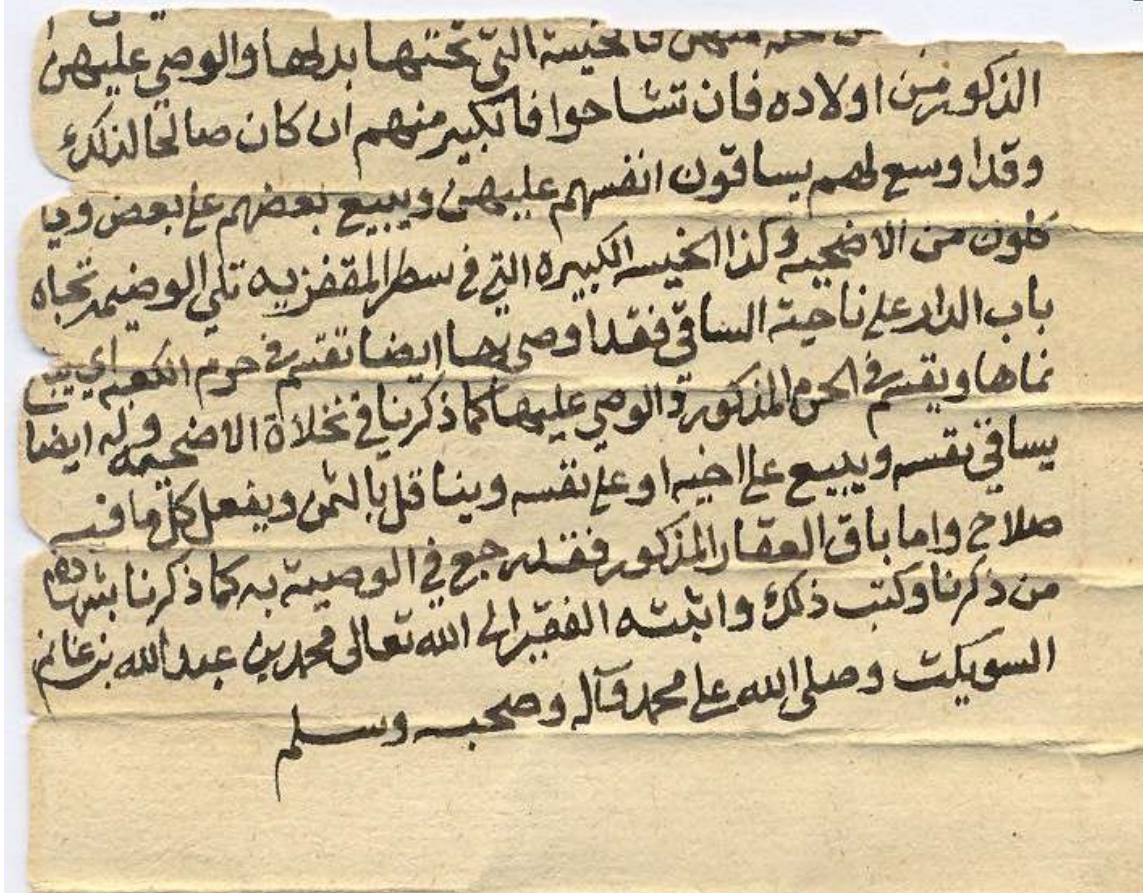 منهن فالخيسة التي تحتها بدلها والوصي عليهن
الذكور من اولاده فان تشاحوا فالكبير منهم ان كان صالحا لذلك
وقد اوسع لهم يساقون انفسهم عليهن ويبيع بعضهم على بعض ويا
كلون من الاضحيه وكذا الخيسه الكبيره التي في سطر المقفزيه تلي الوضيمر تجاه
باب الدار على ناحية الساقي فقد اوصى بها ايضا تقسم في حرم الكعبه اي يباع
نماها ويقسم في الحرم المذكور والوصي عليها كما ذكرنا في نخلاة الاضحيه وله ايضا
يساقي نفسه ويبيع على اخيه او على نفسه ويناقل بالثمن ويفعل كل ما فيه
صلاح واما باقي العقار المذكور فقد رجع في الوصية به كما ذكرنا بشهادة
من ذكرنا وكتب ذلك واثبته الفقير الى الله تعالى محمد بن عبدالله بن غانم
السويكت وصلى الله على محمد وآله وصحبه وسلم